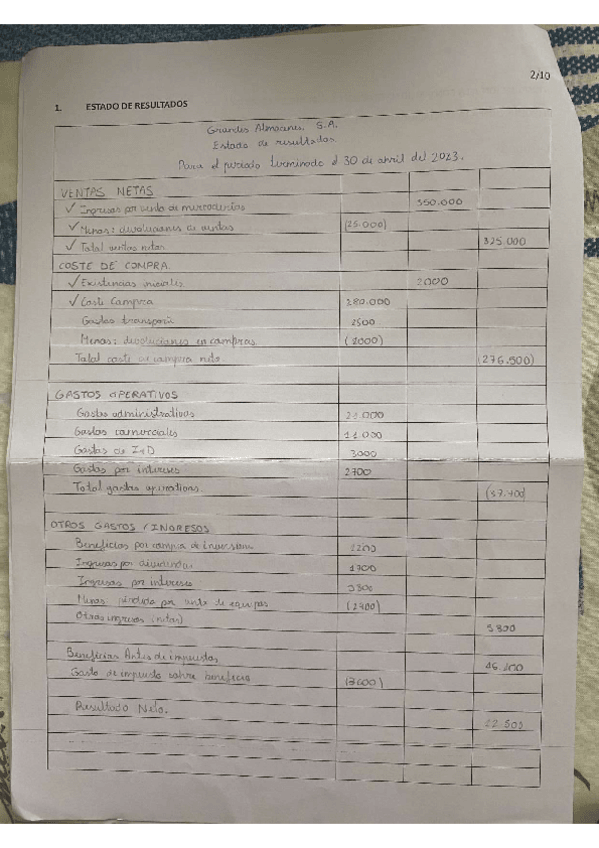 2/10
1. ESTADO DE RESULTADOS
Grandes Almacenes, S.A.
Estado de resultados
Para el periodo terminado el 30 de abril del 2023.
VENTAS NETAS
✓ Ingresos por venta de mercaderías 350.000
✓ Menos: devoluciones de ventas (25.000)
✓ Total ventas netas 325.000
COSTE DE COMPRA
✓ Existencias iniciales 2000
✓ Coste Compra 280.000
Gastos transporte 2500
Menos: devoluciones en compras
Total coste de compra neto. (276.500)
GASTOS OPERATIVOS
Gastos administrativos 21.000
Gastos comerciales 11.000
Gastos de I+D 3000
Gastos por intereses 2700
Total gastos
OTROS GASTOS / INGRESOS
Beneficios por
Ingresos por dividendos 1700
Ingresos por intereses
Menos: pérdida por venta de equipos
Otros ingresos (netos)
Beneficios Antes de impuestos
Gasto de impuesto sobre beneficio
Resultado Neto.